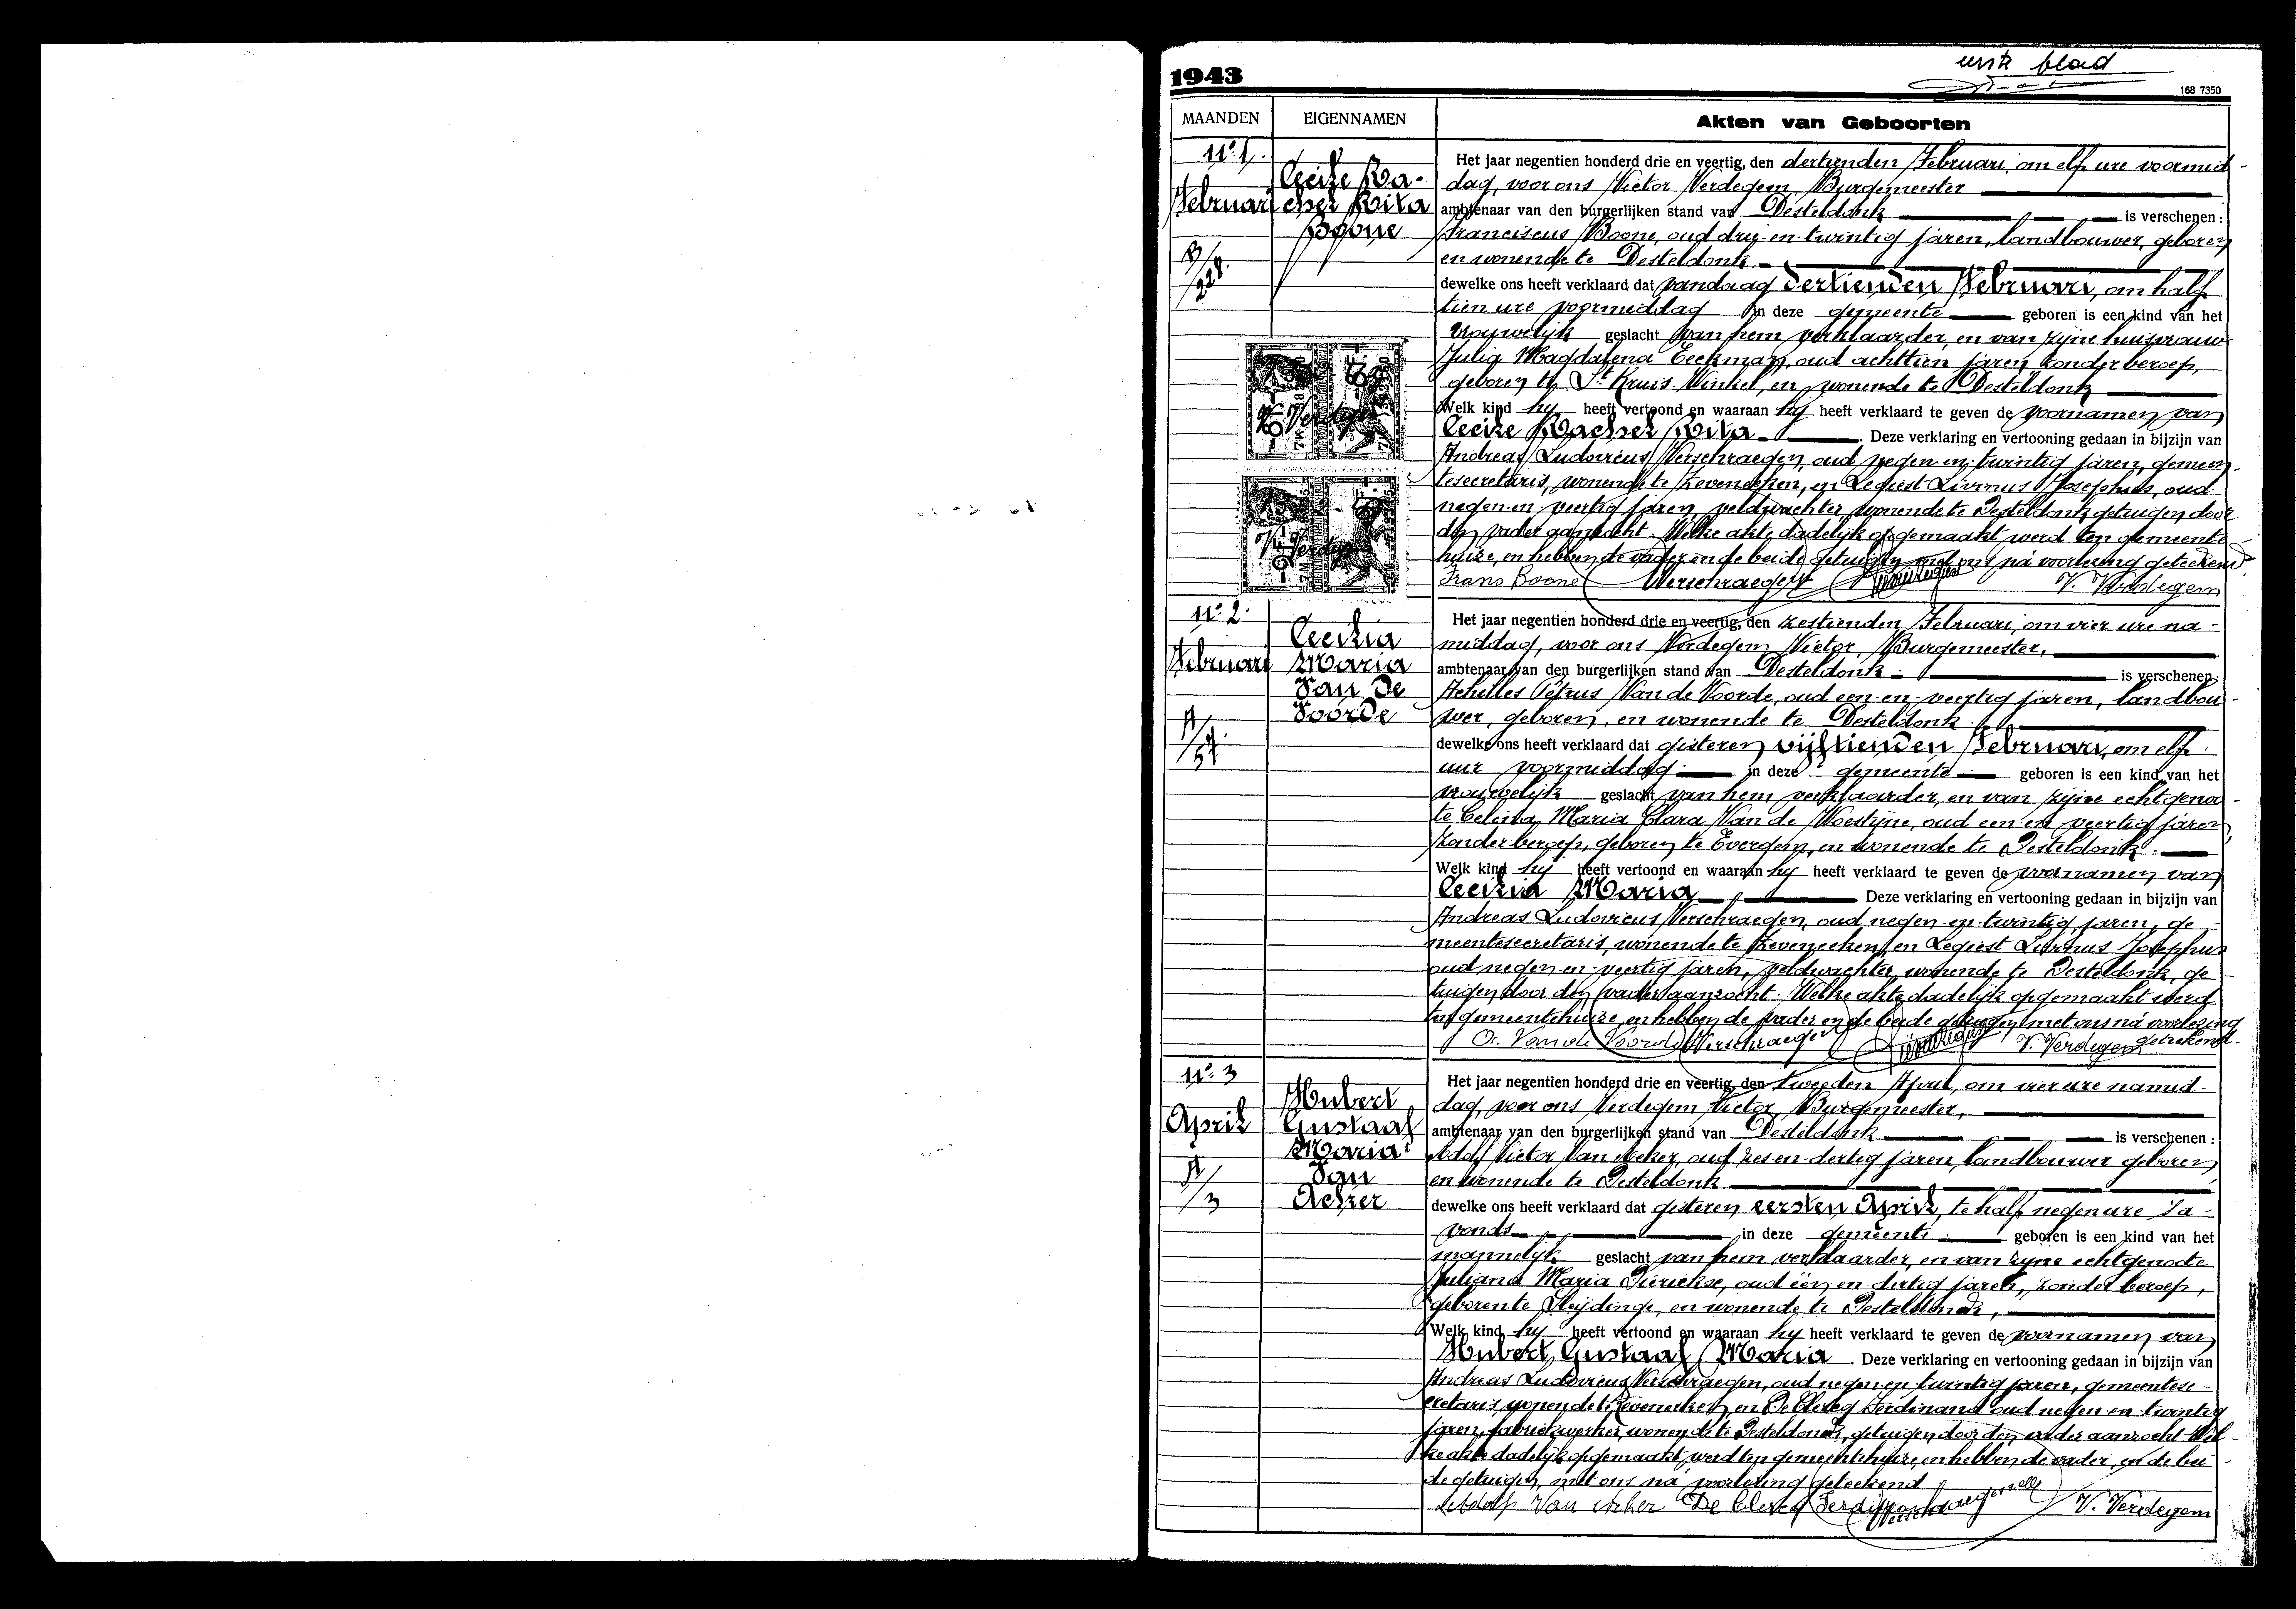 1943
168 7350
MAANDEN
EIGENNAMEN
Akten van Geboorten
N° 1.
Februari
Cecile Ra-
chel Rita
Boone
B/228.
Het jaar negentien honderd drie en veertig, den dertienden Februari, om elf ure voormid-
dag, voor ons Victor Verdegem, Burgemeester
ambtenaar van den burgerlijken stand van Desteldonk is verschenen :
Franciscus Boone, oud drij-en-twintig jaren, landbouwer, geboren
en wonende te Desteldonk
dewelke ons heeft verklaard dat vandaag dertienden Februari, om half
tien ure voormiddag in deze gemeente geboren is een kind van het
vrouwelijk geslacht van hem verklaarder, en van zijne huisvrouw
Julia Magdalena Eeckman, oud achttien jaren, zonder beroep,
geboren te St Kruis-Winkel, en wonende te Desteldonk
Welk kind hij heeft vertoond en waaraan hij heeft verklaard te geven de voornamen van
Cecile Rachel Rita. Deze verklaring en vertooning gedaan in bijzijn van
Andreas Ludovicus Verschraegen, oud negen-en-twintig jaren, gemeen-
tesecretaris, wonende te Zeveneeken, en Legiest Livinus Josephus, oud
negen-en-veertig jaren, veldwachter, wonende te Desteldonk, getuigen door
den vader aanzocht. Welke akte dadelijk opgemaakt werd ten gemeente-
huize, en hebben de vader en de beide getuigen met ons ná voorlezing geteekend.
Frans Boone Verschraegen V. Verdegem
N° 2.
Februari
Cecilia
Maria
Van De
Voorde
A/57.
Het jaar negentien honderd drie en veertig, den zestienden Februari, om vier ure na-
middag, voor ons Verdegem Victor, Burgemeester,
ambtenaar van den burgerlijken stand van Desteldonk is verschenen:
Achilles Petrus Van de Voorde, oud een-en-veertig jaren, landbou-
wer, geboren, en wonende te Desteldonk.
dewelke ons heeft verklaard dat gisteren vijftienden Februari, om elf
uur voormiddag in deze gemeente geboren is een kind van het
vrouwelijk geslacht van hem verklaarder, en van zijne echtgenoo-
te Celina Maria Clara Van de Woestijne, oud een en veertig jaren,
zonder beroep, geboren te Evergem, en wonende te Desteldonk.
Welk kind hij heeft vertoond en waaraan hij heeft verklaard te geven de voornamen van
Cecilia Maria Deze verklaring en vertooning gedaan in bijzijn van
Andreas Ludovicus Verschraegen, oud negen-en-twintig jaren, ge-
meentesecretaris, wonende te Zeveneeken, en Legiest Livinus Josephus
oud negen-en-veertig jaren, veldwachter, wonende te Desteldonk, ge-
tuigen door den vader aanzocht. Welke akte dadelijk opgemaakt werd
ten gemeentehuize, en hebben de vader en de beide getuigen met ons ná voorlezing
geteekend.
A. Van de Voorde Verschraegen V. Verdegem
N° 3
April
Hubert
Gustaaf
Maria
Van
Acker
A/3
Het jaar negentien honderd drie en veertig, den tweeden April, om vier ure namid-
dag, voor ons Verdegem Victor, Burgemeester,
ambtenaar van den burgerlijken stand van Desteldonk is verschenen :
Adolf Victor Van Acker, oud zes en dertig jaren, landbouwer geboren
en wonende te Desteldonk
dewelke ons heeft verklaard dat gisteren eersten April, te half negen ure 's a-
vonds in deze gemeente geboren is een kind van het
mannelijk geslacht van hem verklaarder, en van zijne echtgenote
Juliana Maria Dierickse, oud één en-dertig jaren, zonder beroep,
geboren te Sleijdinge, en wonende te Desteldonk,
Welk kind hij heeft vertoond en waaraan hij heeft verklaard te geven de voornamen van
Hubert Gustaaf Maria. Deze verklaring en vertooning gedaan in bijzijn van
Andreas Ludovicus Verschraegen, oud negen-en-twintig jaren, gemeentese-
cretaris, wonende te Zeveneeken, en De Clercq Ferdinand oud negen-en-twintig
jaren, fabriekwerker, wonende te Desteldonk, getuigen door den vader aanzocht. Wel-
ke akte dadelijk opgemaakt werd ten gemeentehuize, en hebben de vader, en de bei-
de getuigen, met ons ná voorlezing geteekend
Adolf Van Acker De Clercq Ferdinand Verschraegen V. Verdegem